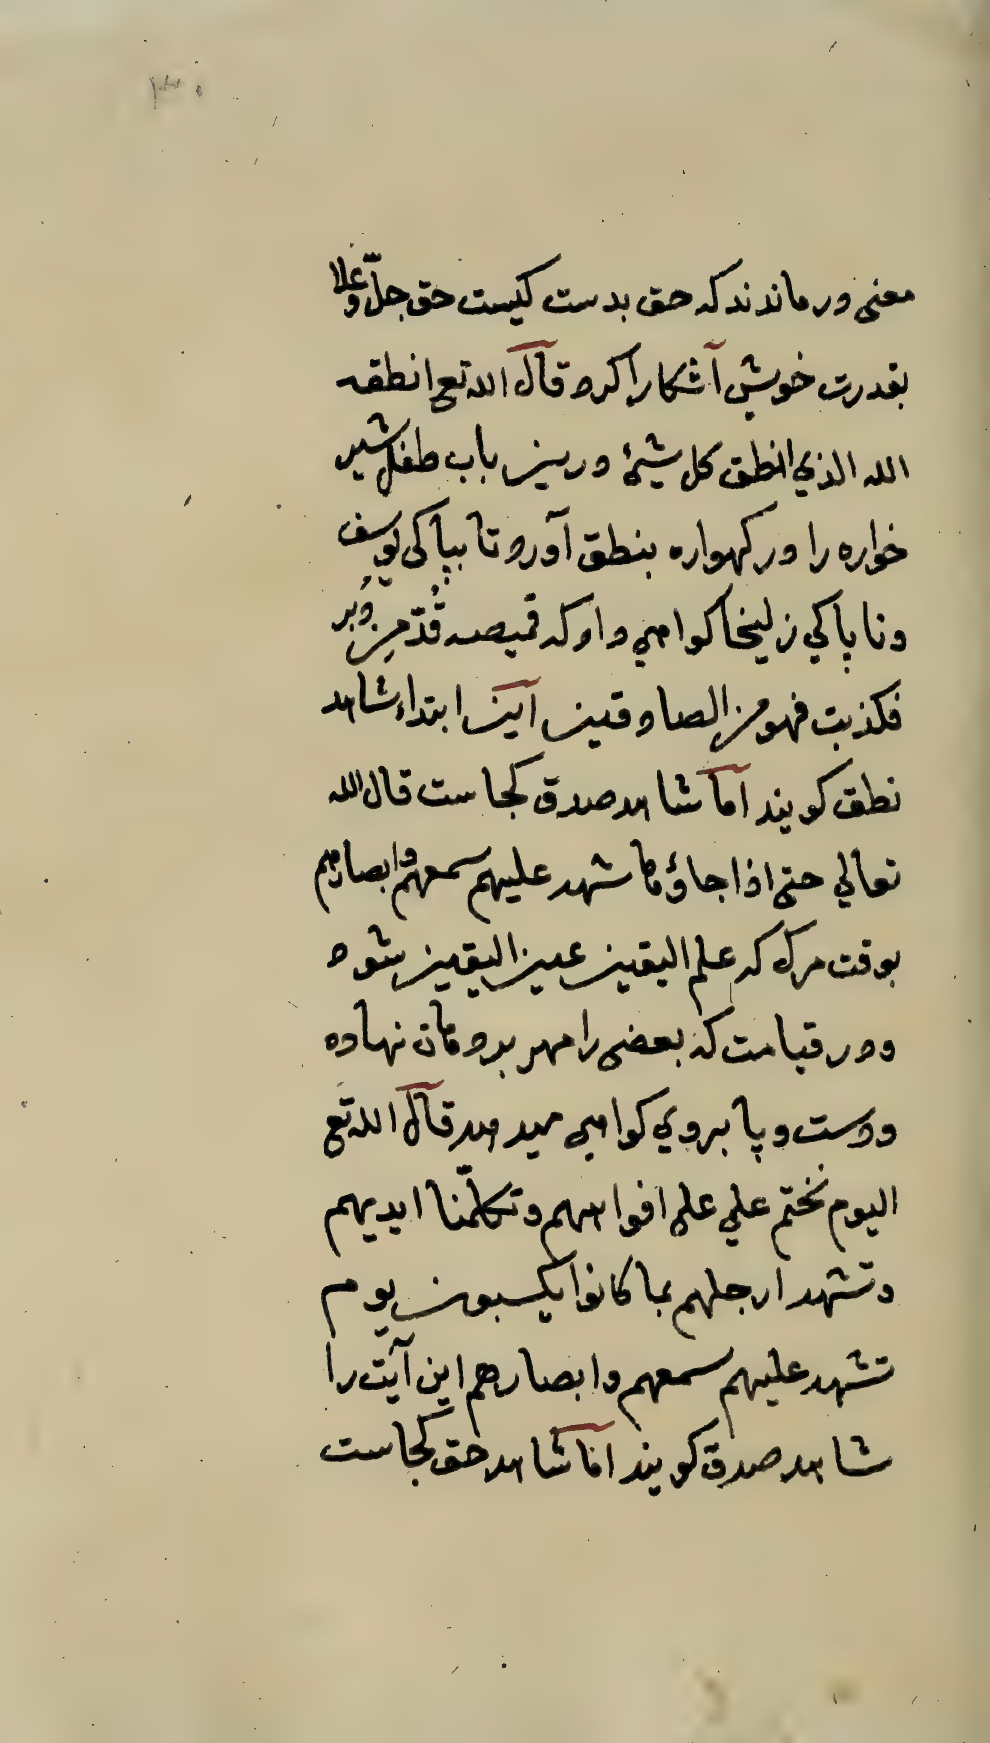 ۳۰
معنی درماندند که حق بدست کیست حق جلّ وعلا
بقدرت خویش آشکارا کرد قال الله تع انطقه
الله الذي انطق کل شیئ درین باب طفل شیر
خواره را در کهواره بنطق آورد تا بپاکی یوسف
ونا پاکي زلیخا کواهي داد که قمیصه قُدّ مِن دُبر
فکذبت فهو من الصادقین این ابتداء شاهد
نطق کویند امّا شاهد صدق کجاست قال الله
تعالي حتی اذا جاؤها شهد علیهم سمعهم وابصارهم
بوقت مرک که علم الیقین عین الیقین شود
ودر قیامت که بعضی را مهر بر دهان نهاده
ودست وپا بروي کواهي میدهد قال الله تع
الیوم نختم علي علی افواههم وتکلّمنا ایدیهم
وتشهد ارجلهم بما کانوا یکسبون یوم
تشهد علیهم سمعهم وابصارهم این آیت را
شاهد صدق کویند امّا شاهد حق کجاست